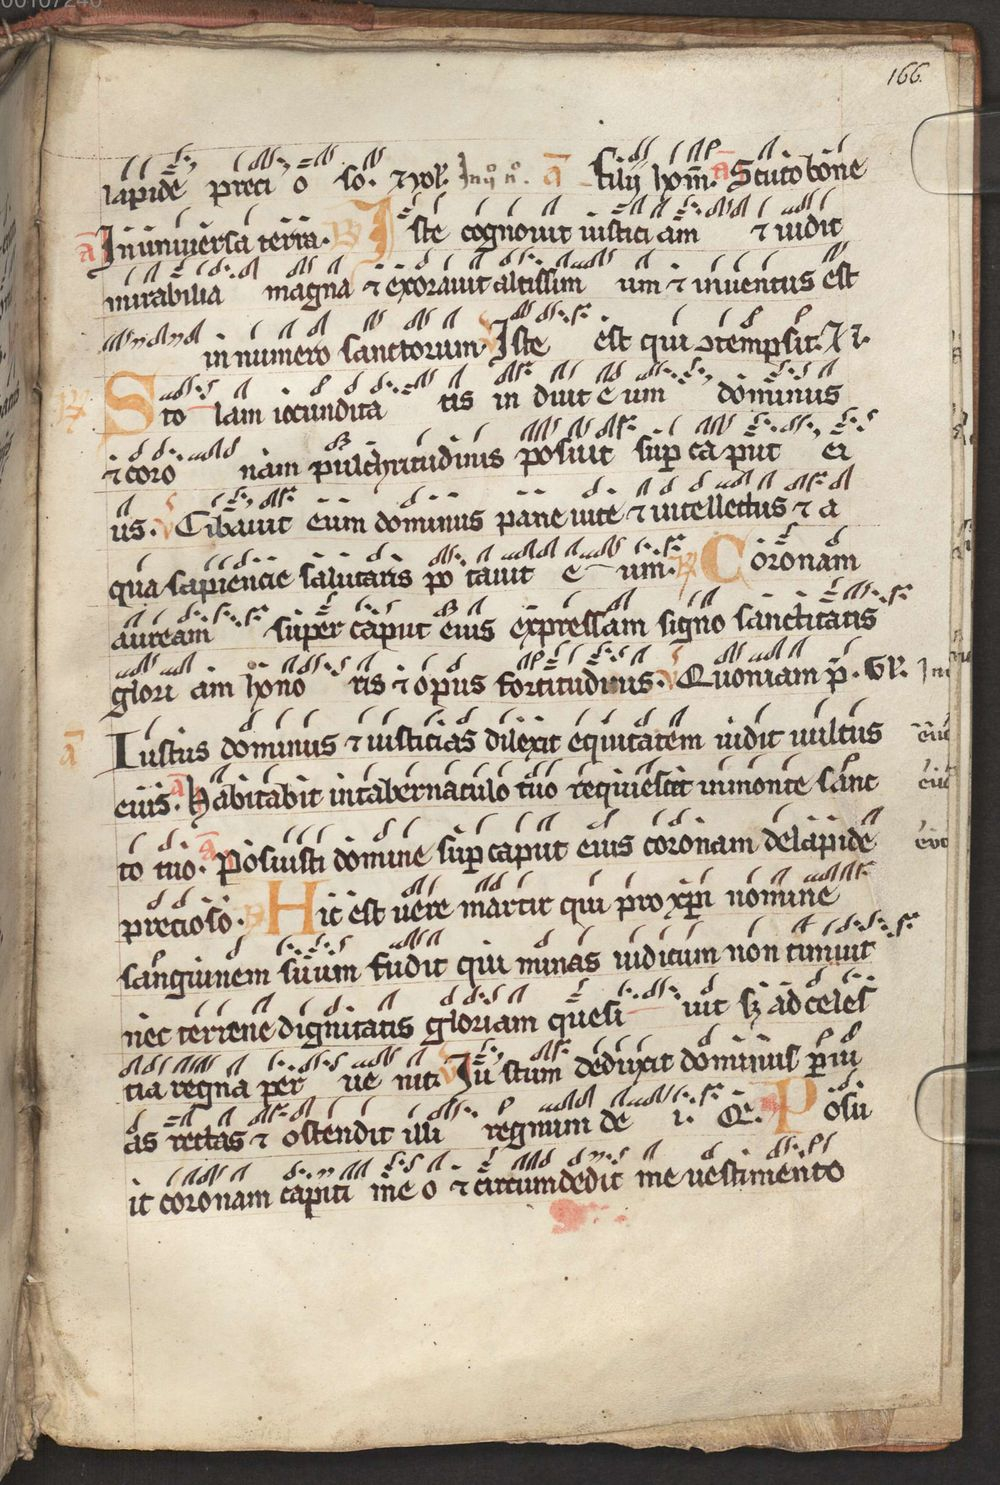 166.
lapide preci o so. ⁊ hon. In ij n̊. a̅ Filij hom̅. a̅ Scuto bone
a̅ In uniuersa terra. R Iste cognouit iusticiam ⁊ uidit
mirabilia magna ⁊ exorauit altissim um ⁊ inuentus est
in numero sanctorum. V Iste est qui ↄtempsit. Et
R Sto lam iocundita tis in duit e um dominus
⁊ coro nam pulchritudinis posuit sup caput ei
us. V Cibauit eum dominus pane uite ⁊ intellectus ⁊ a
qua sapiencie salutaris po tauit e um. R Coronam
auream super caput eius expressam signo sanctitatis
glori am hono ris ⁊ opus fortitudinis. V Quoniam p̅. Gl.
a̅ Iustus dominus ⁊ iusticias dilexit equitatem uidit uultus
eius. a̅ Habitabit in tabernaculo tuo requiescit in monte sanc
to tuo. a̅ Posuisti domine sup caput eius coronam de lapide
precioso. R Hic est uere martir qui pro xp̅i nomine
sanguinem suum fudit qui minas iudicum non timuit
nec terrene dignitatis gloriam quesi uit sz ad celes
tia regna per ue nit. V Iu stum deduxit dominus p̅ ui
as rectas ⁊ ostendit illi regnum de i. Q̅. R Posu
it coronam capiti me o ⁊ circumdedit me uestimento